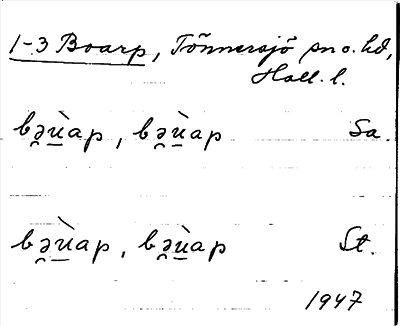 1-3 Boarp, Tõnnersjö sn o. hd,
Hall. l.
bə̯ù̲ap, bə̯ù̲ap Sa.
bə̯ù̲ap, bə̯ù̲ap St.
1947